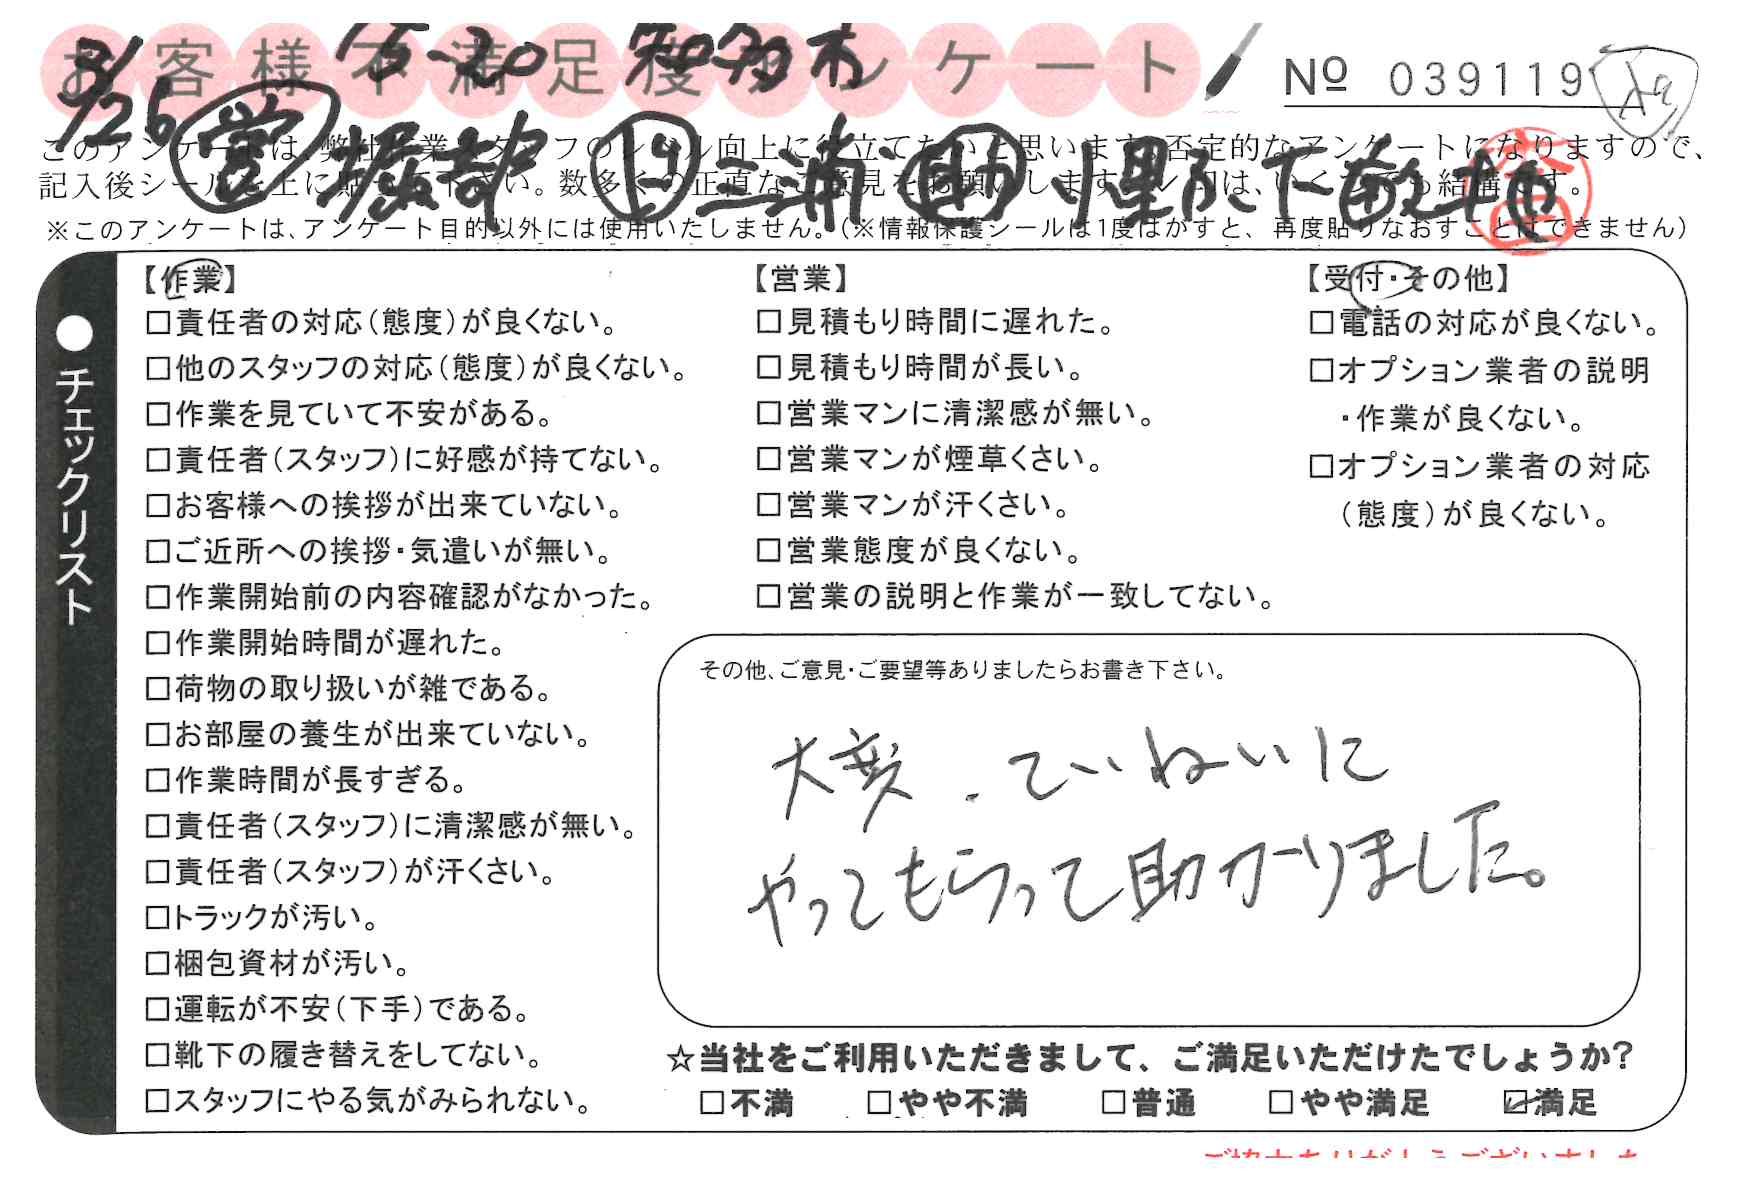 お客様不満足度アンケート
3/26 15-20 知多市
Nº 039119
営 堀部 上 三浦 助
このアンケートは、弊社作業スタッフのレベル向上に役立てたいと思います。否定的なアンケートになりますので、
記入後シールを上に貼って下さい。数多くの正直なご意見をお願いします。
※このアンケートは、アンケート目的以外には使用いたしません。(※情報保護シールは1度はがすと、再度貼りなおすことはできません)
●チェックリスト
【作業】
□責任者の対応(態度)が良くない。
□他のスタッフの対応(態度)が良くない。
□作業を見ていて不安がある。
□責任者(スタッフ)に好感が持てない。
□お客様への挨拶が出来ていない。
□ご近所への挨拶・気遣いが無い。
□作業開始前の内容確認がなかった。
□作業開始時間が遅れた。
□荷物の取り扱いが雑である。
□お部屋の養生が出来ていない。
□作業時間が長すぎる。
□責任者(スタッフ)に清潔感が無い。
□責任者(スタッフ)が汗くさい。
□トラックが汚い。
□梱包資材が汚い。
□運転が不安(下手)である。
□靴下の履き替えをしてない。
□スタッフにやる気がみられない。
【営業】
□見積もり時間に遅れた。
□見積もり時間が長い。
□営業マンに清潔感が無い。
□営業マンが煙草くさい。
□営業マンが汗くさい。
□営業態度が良くない。
□営業の説明と作業が一致してない。
【受付・その他】
□電話の対応が良くない。
□オプション業者の説明
・作業が良くない。
□オプション業者の対応
(態度)が良くない。
その他、ご意見・ご要望等ありましたらお書き下さい。
大変、ていねいに
やってもらって助かりました。
☆当社をご利用いただきまして、ご満足いただけたでしょうか?
□不満 □やや不満 □普通 □やや満足 ☑満足
ご協力ありがとうございました